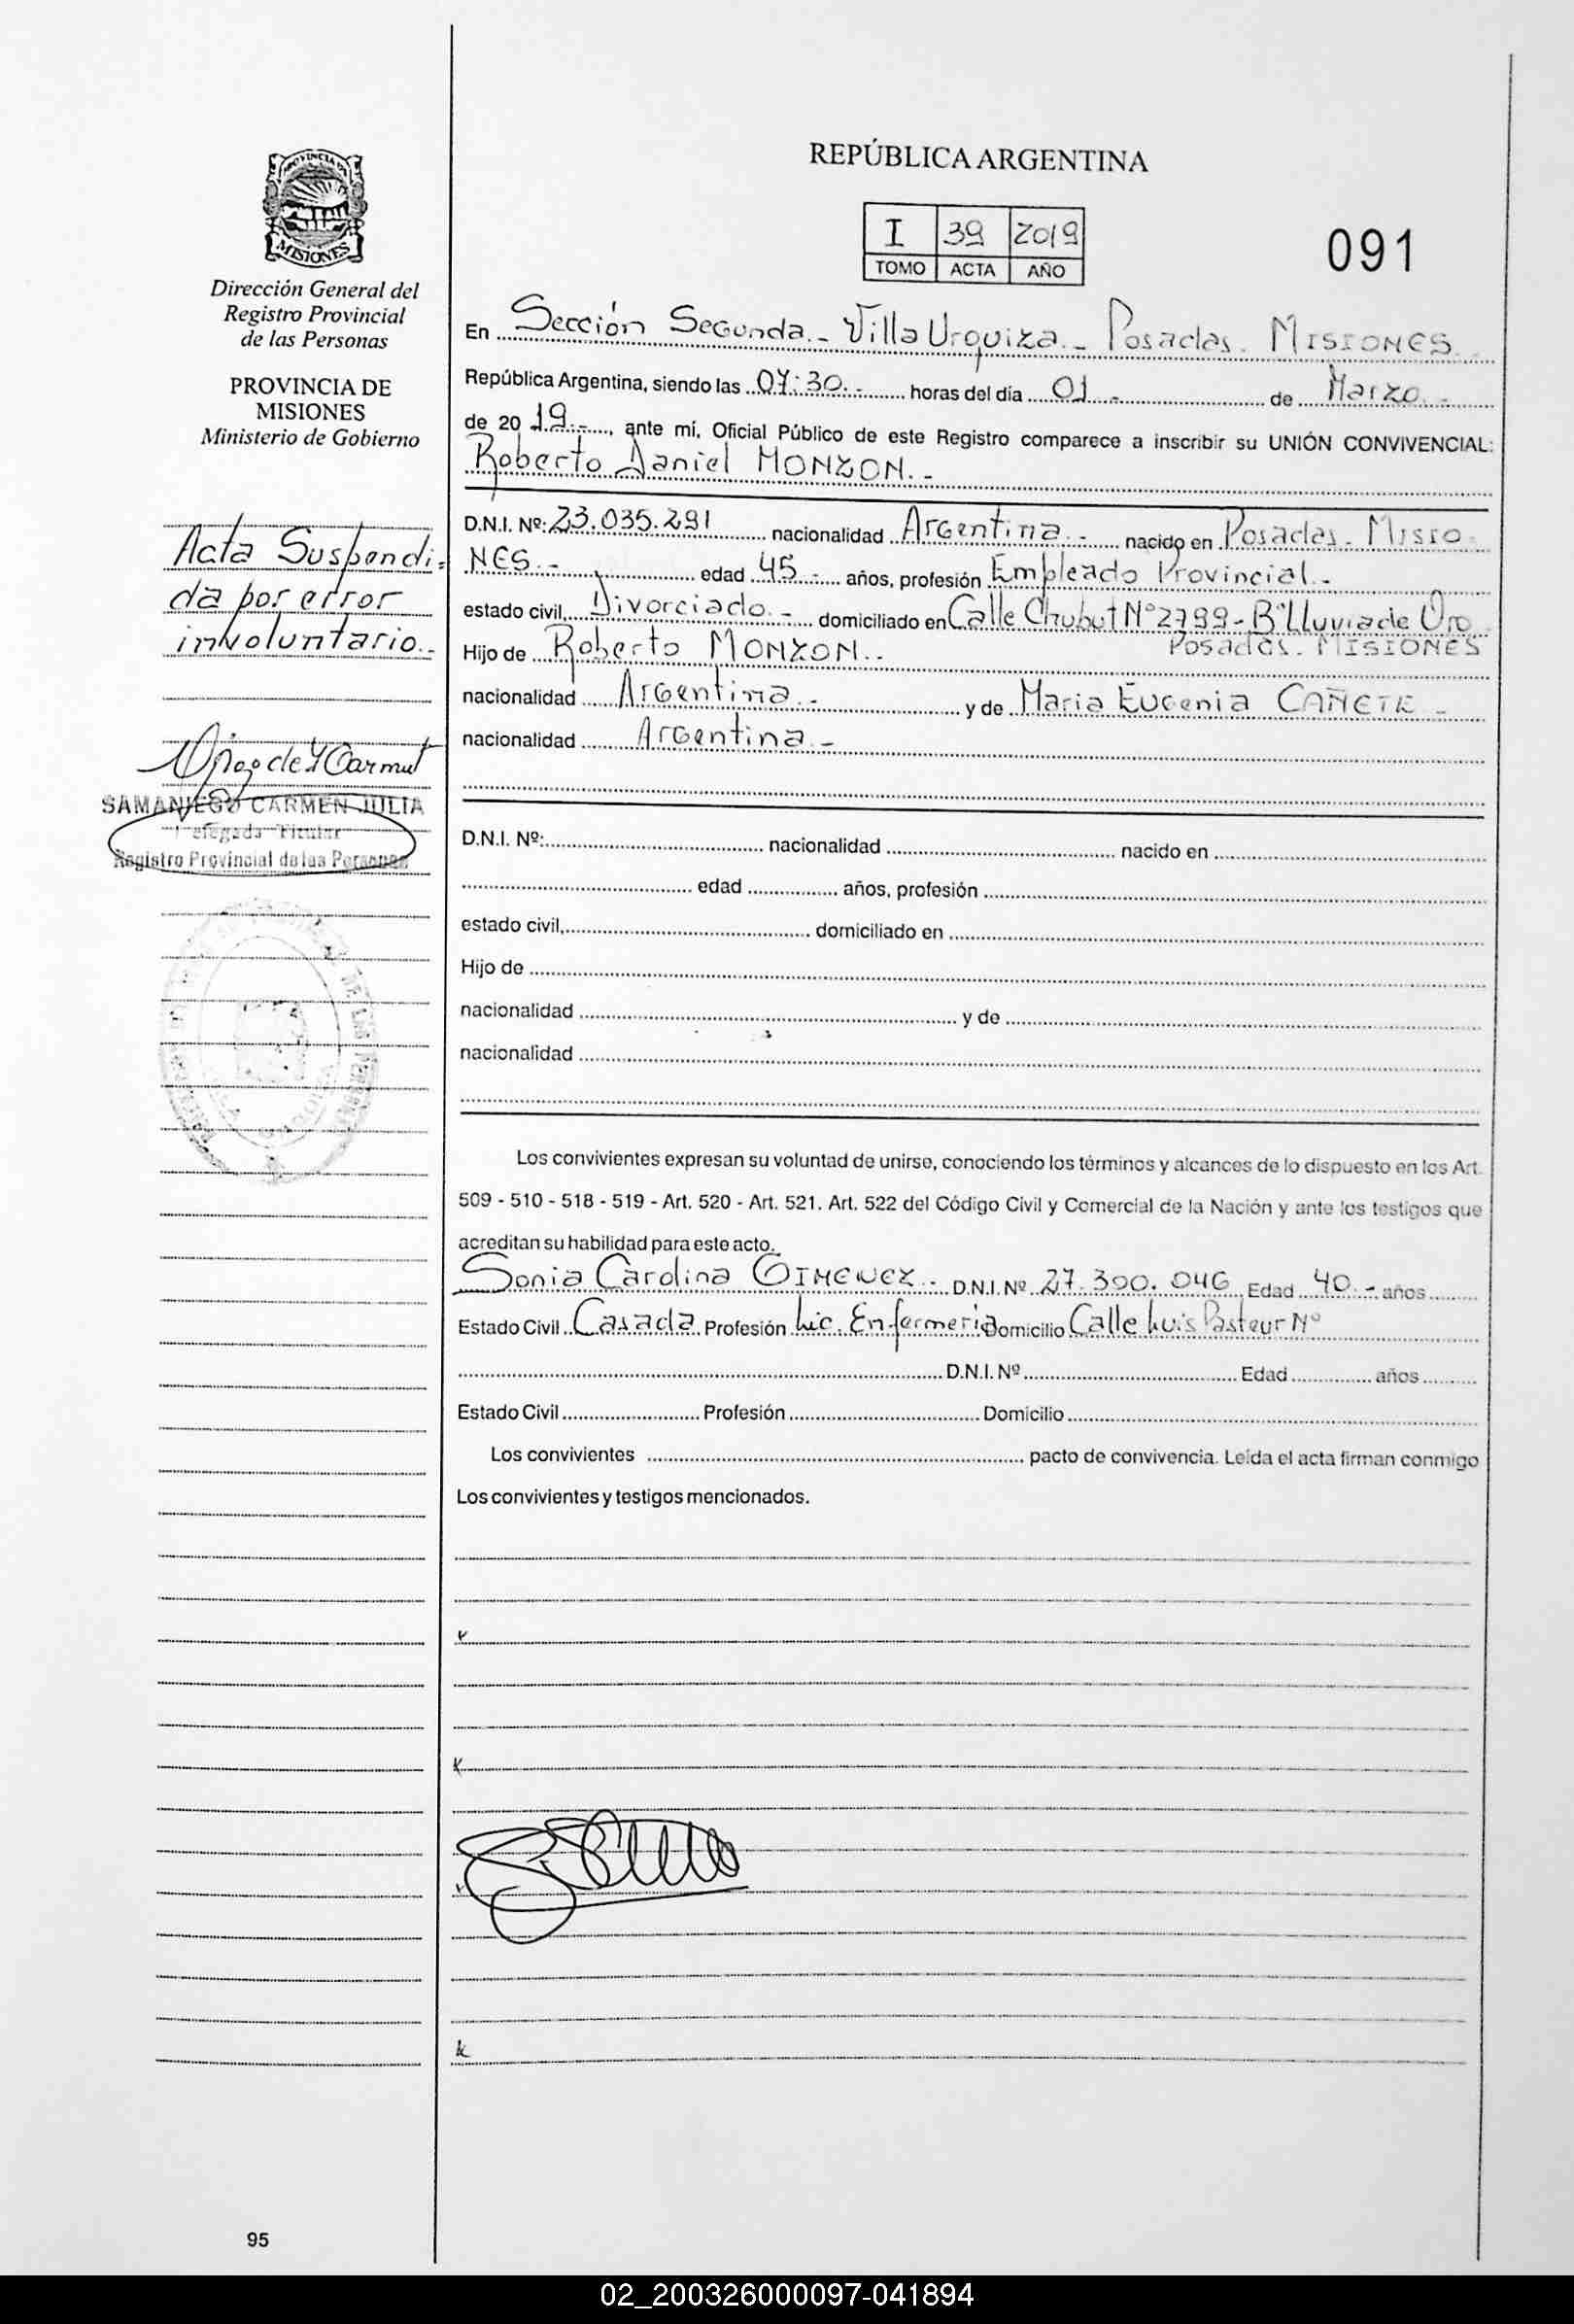 REPÚBLICA ARGENTINA
I 39 2019
TOMO ACTA AÑO
091
MISIONES
Dirección General del
Registro Provincial
de las Personas
PROVINCIA DE
MISIONES
Ministerio de Gobierno
Acta Suspendi=
da por error
involuntario.-
SAMANIEGO CARMEN JULIA
Delegada Titular
Registro Provincial de las Personas
En Sección Segunda.- Villa Urquiza.- Posadas. MISIONES.
República Argentina, siendo las 07:30.- horas del día 01.- de Marzo.-
de 20 19.-, ante mí, Oficial Público de este Registro comparece a inscribir su UNIÓN CONVIVENCIAL:
Roberto Daniel MONZON.-
D.N.I. Nº: 23.035.291 nacionalidad Argentina.- nacido en Posadas. MISIO
NES.- edad 45.- años, profesión Empleado Provincial.-
estado civil, Divorciado.- domiciliado en Calle Chubut Nº 2799-Bº Lluvia de Oro
Posadas. MISIONES
Hijo de Roberto MONZON.-
nacionalidad Argentina.- y de Maria Eugenia CAÑETE -
nacionalidad Argentina.-
D.N.I. Nº: nacionalidad nacido en
edad años, profesión
estado civil, domiciliado en
Hijo de
nacionalidad y de
nacionalidad
Los convivientes expresan su voluntad de unirse, conociendo los términos y alcances de lo dispuesto en los Art.
509 - 510 - 518 - 519 - Art. 520 - Art. 521. Art. 522 del Código Civil y Comercial de la Nación y ante los testigos que
acreditan su habilidad para este acto.
Sonia Carolina GIMENEZ.- D.N.I. Nº 27.300.046 Edad 40.- años
Estado Civil Casada Profesión Lic. Enfermeria Domicilio Calle Luis Pasteur Nº
D.N.I. Nº Edad años
Estado Civil Profesión Domicilio
Los convivientes pacto de convivencia. Leída el acta firman conmigo
Los convivientes y testigos mencionados.
95
02_200326000097-041894